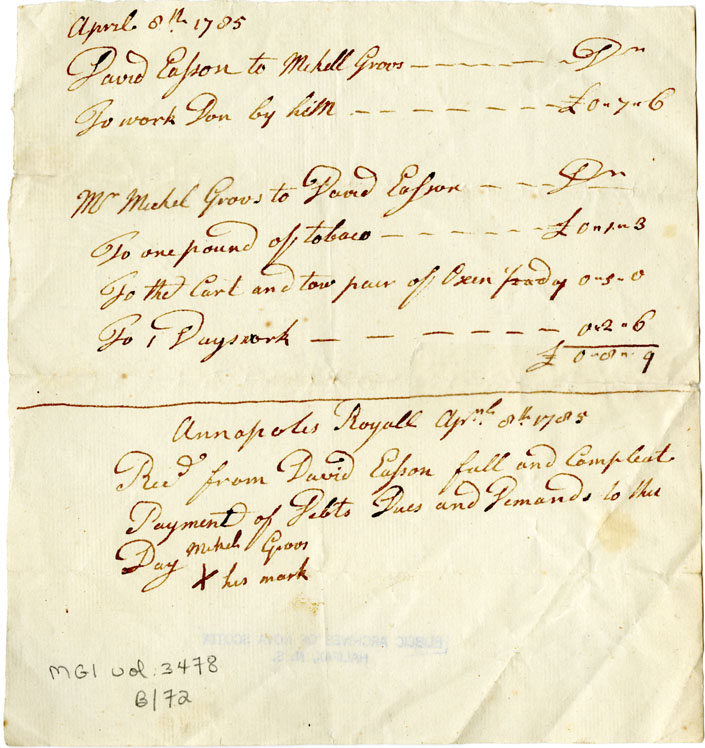 April 8th 1785
David Easson to Mekell Groos — — — — — Dr
To work Don by him — — — — — — £ 0 " 7 " 6
Mr Mickel Groos to David Easson — — Dr
To one pound of tobaco — — — — — £ 0 " 1 " 3
To the Cart and tow pair of Oxen 0 " 5 " 0
To 1 Days work — — — — — — 0 " 2 " 6
£ 0 " 8 " 9
Annapolis Royall Aprl 8th 1785
Recd from David Easson full and Compleat
Payment of Debts Dues and Demands to this
Day Mickel Groos
X his mark
PUBLIC ARCHIVES OF NOVA SCOTIA
HALIFAX, N. S.
MG1 vol. 3478
B/72